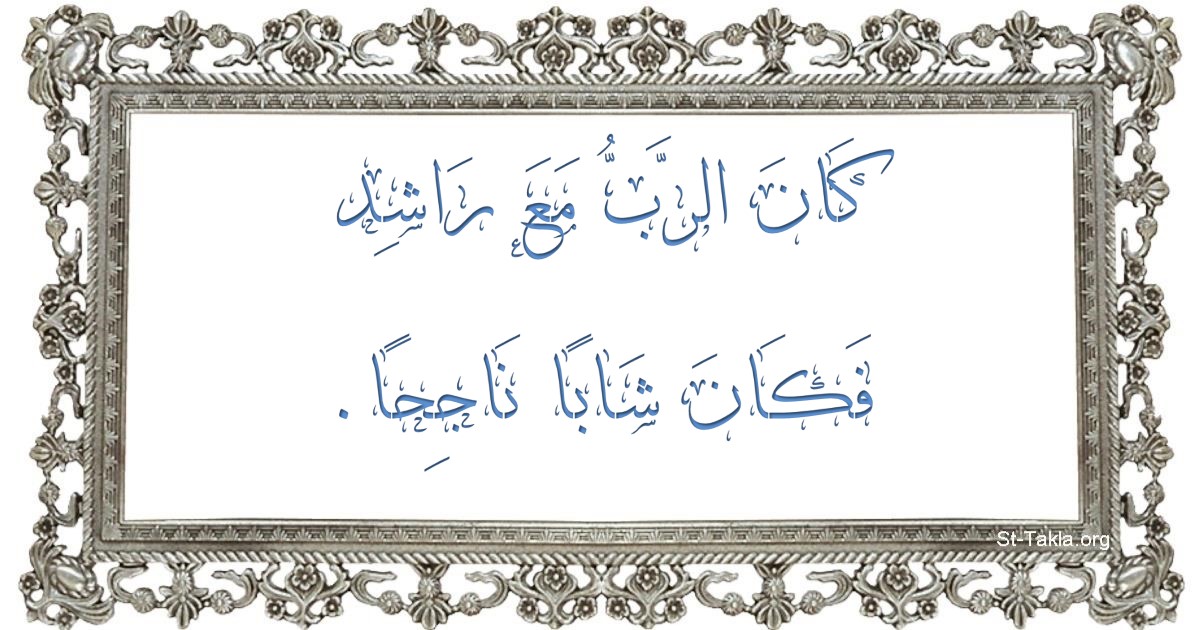 كَانَ الرَّبُّ مَعَ رَاشِدِ
فَكَانَ شَابًا نَاجِحًا .
St-Takla.org